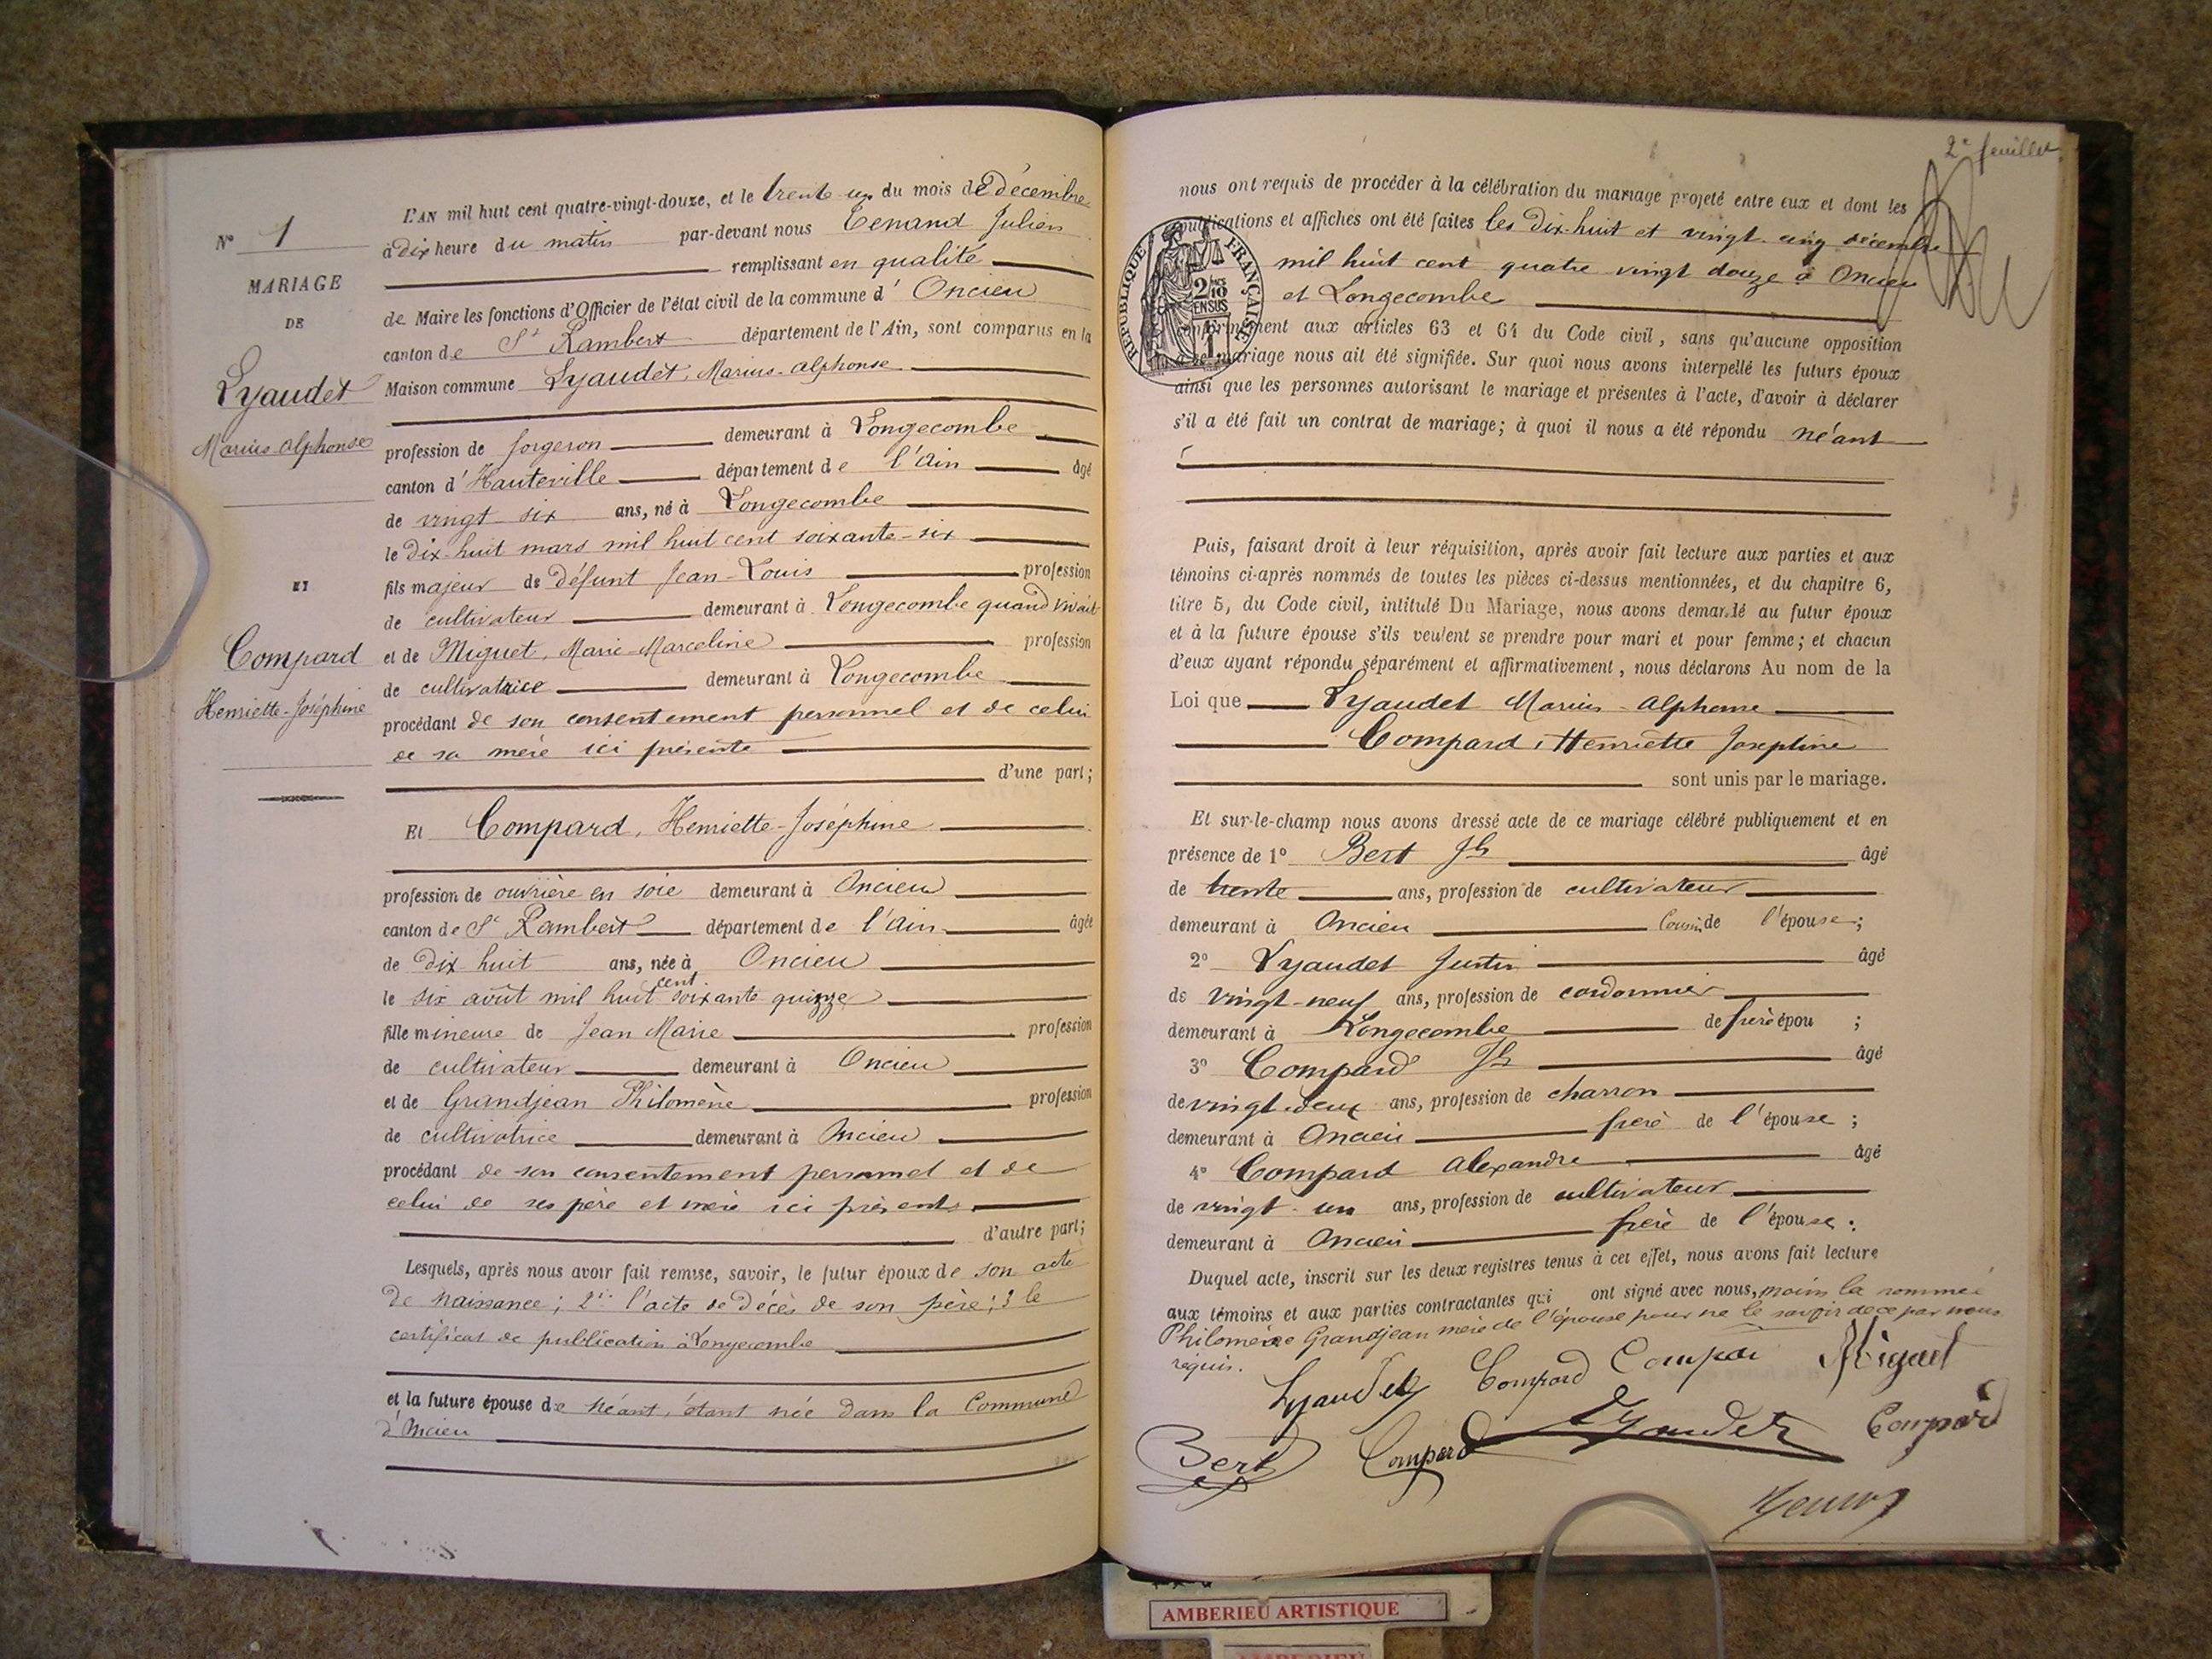 N° 1
MARIAGE
DE
Lyaudet
Marius-Alphonse
ET
Compard
Henriette-Joséphine
L'AN mil huit cent quatre-vingt-douze, et le trente-un du mois de Décembre
à dix heure du matin par-devant nous Tenand Julien
remplissant en qualité
de Maire les fonctions d'Officier de l'état civil de la commune d' Oncieu
canton de St Rambert département de l'Ain, sont comparus en la
Maison commune Lyaudet, Marius-Alphonse
profession de forgeron demeurant à Longecombe
canton d' Hauteville département de l'Ain âgé
de vingt six ans, né à Longecombe
le dix-huit mars mil huit cent soixante-six
fils majeur de défunt Jean-Louis profession
de cultivateur demeurant à Longecombe quand vivait
et de Miguet, Marie-Marceline profession
de cultivatrice demeurant à Longecombe
procédant de son consentement personnel et de celui
de sa mère ici présente
d'une part;
Et Compard, Henriette-Joséphine
profession de ouvrière en soie demeurant à Oncieu
canton de St Rambert département de l'Ain âgée
de dix-huit ans, née à Oncieu
le six août mil huit cent soixante quinze
fille mineure de Jean Marie profession
de cultivateur demeurant à Oncieu
et de Grandjean Philomène profession
de cultivatrice demeurant à Oncieu
procédant de son consentement personnel et de
celui de ses père et mère ici présents
d'autre part;
Lesquels, après nous avoir fait remise, savoir, le futur époux de son acte
de naissance; 2° l'acte de décès de son père; 3 le
certificat de publication à Longecombe
et la future épouse de néant, étant née dans la Commune
d'Oncieu
2e feuillet
nous ont requis de procéder à la célébration du mariage projeté entre eux et dont les
publications et affiches ont été faites les dix-huit et vingt-cinq décembre
mil huit cent quatre vingt douze à Oncieu
et Longecombe
RÉPUBLIQUE FRANÇAISE
2/10 EN SUS
conformément aux articles 63 et 64 du Code civil, sans qu'aucune opposition
à ce mariage nous ait été signifiée. Sur quoi nous avons interpellé les futurs époux
ainsi que les personnes autorisant le mariage et présentes à l'acte, d'avoir à déclarer
s'il a été fait un contrat de mariage; à quoi il nous a été répondu néant
Puis, faisant droit à leur réquisition, après avoir fait lecture aux parties et aux
témoins ci-après nommés de toutes les pièces ci-dessus mentionnées, et du chapitre 6,
titre 5, du Code civil, intitulé Du Mariage, nous avons demandé au futur époux
et à la future épouse s'ils veulent se prendre pour mari et pour femme; et chacun
d'eux ayant répondu séparément et affirmativement, nous déclarons Au nom de la
Loi que Lyaudet Marius-Alphonse
Compard, Henriette Joséphine
sont unis par le mariage.
Et sur-le-champ nous avons dressé acte de ce mariage célébré publiquement et en
présence de 1° Bert Jh âgé
de trente ans, profession de cultivateur
demeurant à Oncieu Cousin de l'épouse;
2° Lyaudet Justin âgé
de vingt-neuf ans, profession de cordonnier
demeurant à Longecombe de frère épou ;
3° Compard Jh âgé
de vingt-deux ans, profession de charron
demeurant à Oncieu frère de l'épouse;
4° Compard Alexandre âgé
de vingt-un ans, profession de cultivateur
demeurant à Oncieu frère de l'épouse.
Duquel acte, inscrit sur les deux registres tenus à cet effet, nous avons fait lecture
aux témoins et aux parties contractantes qui ont signé avec nous, moins la nommée
Philomène Grandjean mère de l'épouse pour ne le savoir de ce par nous
requis.
Lyaudet Compard Compar Miguet
Bert Compard Lyaudet Compard
AMBERIEU ARTISTIQUE
AMBERIEU